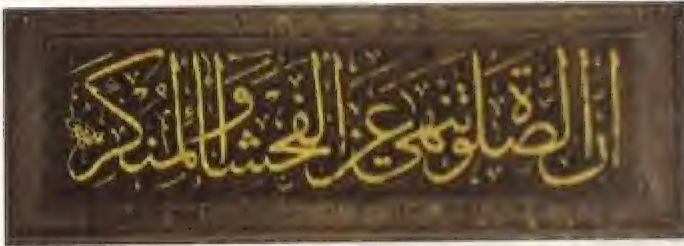 ان الصلوة تنهى عن الفحشاء والمنكر